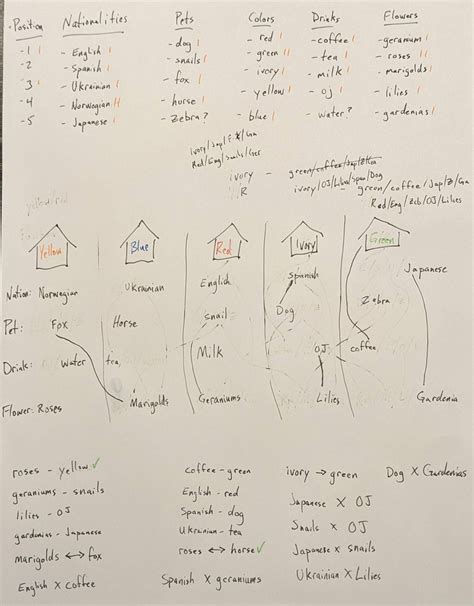 Position Nationalities Pets Colors Drinks Flowers
-1 | - English | - dog | - red | - coffee | - geranium |
-2 - Spanish | - snails | - green || - tea | - roses ||
-3 | - Ukrainian | - fox | ivory | - milk | - marigolds |
-4 - Norwegian || - horse | - yellow | - oj | - lilies |
-5 - Japanese | - Zebra? - blue | - water? - gardenias |
Red/Eng/snails/Ger
ivory - green/coffee/Jap/Z/Ga
R ivory/OJ/Lilies/Span/Dog
green/coffee/Jap/Z/Ga
yellow/red
Yellow Blue Red Ivory Green
Nation: Norwegian Ukrainian English Spanish Japanese
Pet: Fox Horse snail Dog Zebra
Drink: Water tea Milk OJ coffee
Flower: Roses Marigolds Geraniums Lilies Gardenia
roses - yellow ✓ coffee - green ivory → green Dog X Gardenias
geraniums - snails English - red Japanese X OJ
lilies - OJ Spanish - dog Snails X OJ
gardenias - Japanese Ukrainian - tea Japanese X snails
marigolds ↔ fox roses ↔ horse ✓ Ukrainian X Lilies
English X coffee Spanish X geraniums